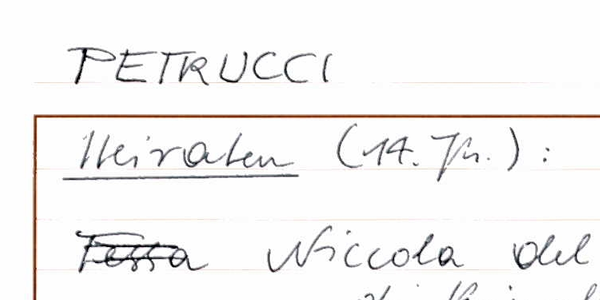 PETRUCCI
Heiraten (14. Jh.):
Tessa Niccola del